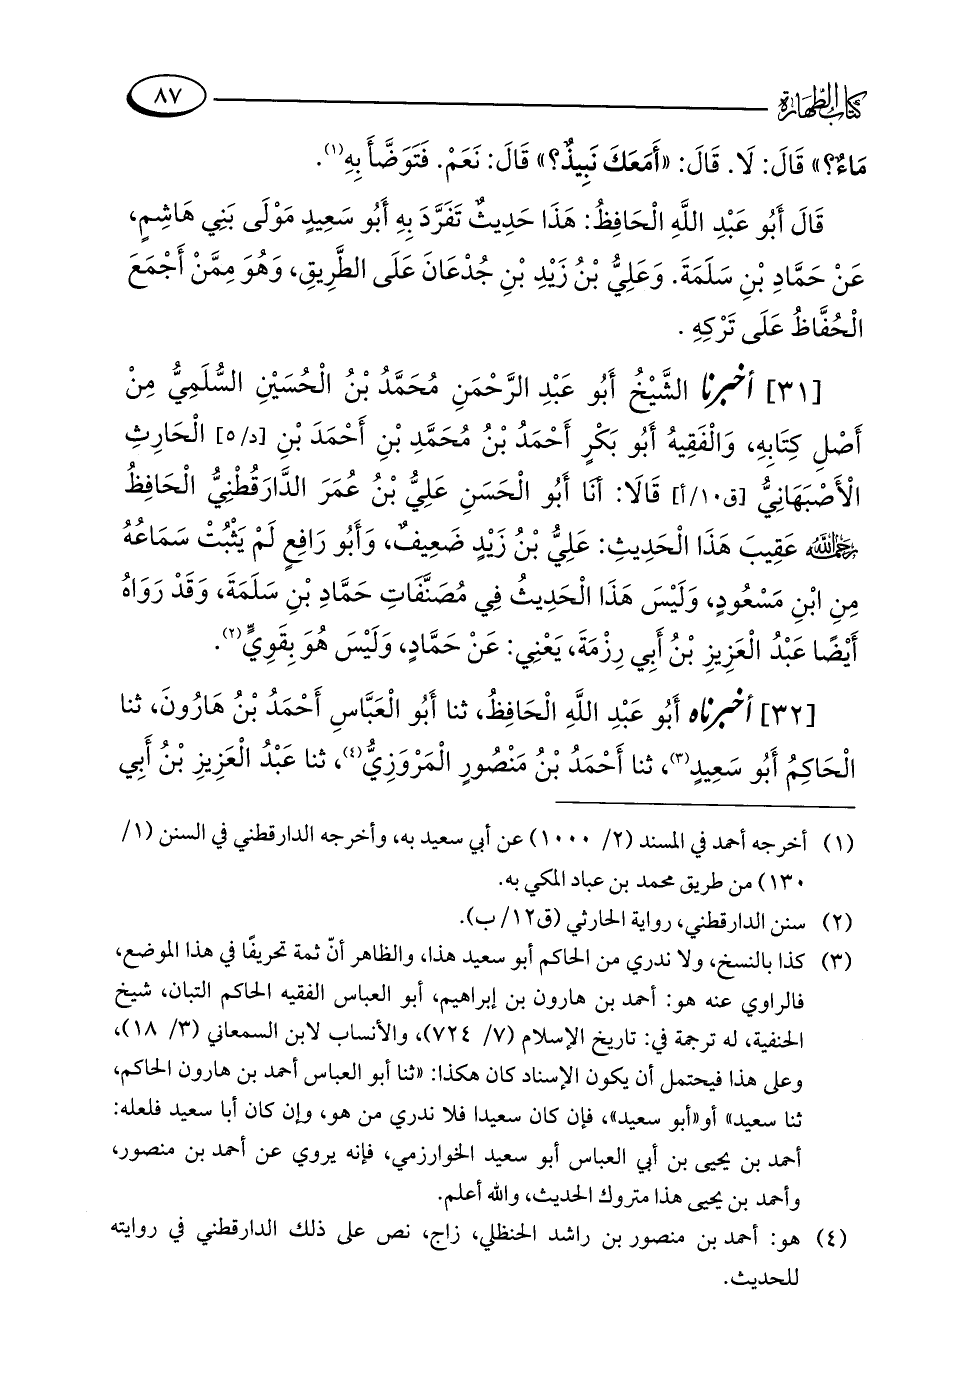 كتاب الطهارة ٨٧
مَاءٌ؟» قَالَ: لَا. قَالَ: «أَمَعَكَ نَبِيذٌ؟» قَالَ: نَعَمْ. فَتَوَضَّأَ بِهِ(١).
قَالَ أَبُو عَبْدِ اللَّهِ الْحَافِظُ: هَذَا حَدِيثٌ تَفَرَّدَ بِهِ أَبُو سَعِيدٍ مَوْلَى بَنِي هَاشِمٍ،
عَنْ حَمَّادِ بْنِ سَلَمَةَ. وَعَلِيُّ بْنُ زَيْدِ بْنِ جُدْعَانَ عَلَى الطَّرِيقِ، وَهُوَ مِمَّنْ أَجْمَعَ
الْحُفَّاظُ عَلَى تَرْكِهِ .
[٣١] أخبرنا الشَّيْخُ أَبُو عَبْدِ الرَّحْمَنِ مُحَمَّدُ بْنُ الْحُسَيْنِ السُّلَمِيُّ مِنْ
أَصْلِ كِتَابِهِ، وَالْفَقِيهُ أَبُو بَكْرٍ أَحْمَدُ بْنُ مُحَمَّدِ بْنِ أَحْمَدَ بْنِ [د/٥] الْحَارِثِ
الْأَصْبَهَانِيُّ [ق١٠/أ] قَالَا: أَنَا أَبُو الْحَسَنِ عَلِيُّ بْنُ عُمَرَ الدَّارَقُطْنِيُّ الْحَافِظُ
رحمه الله عَقِيبَ هَذَا الْحَدِيثِ: عَلِيُّ بْنُ زَيْدٍ ضَعِيفٌ، وَأَبُو رَافِعٍ لَمْ يَثْبُتْ سَمَاعُهُ
مِنِ ابْنِ مَسْعُودٍ، وَلَيْسَ هَذَا الْحَدِيثُ فِي مُصَنَّفَاتِ حَمَّادِ بْنِ سَلَمَةَ، وَقَدْ رَوَاهُ
أَيْضًا عَبْدُ الْعَزِيزِ بْنُ أَبِي رِزْمَةَ، يَعْنِي: عَنْ حَمَّادٍ، وَلَيْسَ هُوَ بِقَوِيٍّ(٢).
[٣٢] أخبرناه أَبُو عَبْدِ اللَّهِ الْحَافِظُ، ثنا أَبُو الْعَبَّاسِ أَحْمَدُ بْنُ هَارُونَ، ثنا
الْحَاكِمُ أَبُو سَعِيدٍ(٣)، ثنا أَحْمَدُ بْنُ مَنْصُورٍ الْمَرْوَزِيُّ(٤)، ثنا عَبْدُ الْعَزِيزِ بْنُ أَبِي
(١) أخرجه أحمد في المسند (٢/ ١٠٠٠) عن أبي سعيد به، وأخرجه الدارقطني في السنن (١/
١٣٠) من طريق محمد بن عباد المكي به.
(٢) سنن الدارقطني، رواية الحارثي (ق١٢/ب).
(٣) كذا بالنسخ، ولا ندري من الحاكم أبو سعيد هذا، والظاهر أنّ ثمة تحريفًا في هذا الموضع،
فالراوي عنه هو: أحمد بن هارون بن إبراهيم، أبو العباس الفقيه الحاكم التبان، شيخ
الحنفية، له ترجمة في: تاريخ الإسلام (٧/ ٧٢٤)، والأنساب لابن السمعاني (٣/ ١٨)،
وعلى هذا فيحتمل أن يكون الإسناد كان هكذا: «ثنا أبو العباس أحمد بن هارون الحاكم،
ثنا سعيد» أو«أبو سعيد»، فإن كان سعيدا فلا ندري من هو، وإن كان أبا سعيد فلعله:
أحمد بن يحيى بن أبي العباس أبو سعيد الخوارزمي، فإنه يروي عن أحمد بن منصور،
وأحمد بن يحيى هذا متروك الحديث، والله أعلم.
(٤) هو: أحمد بن منصور بن راشد الحنظلي، زاج، نص على ذلك الدارقطني في روايته
للحديث.